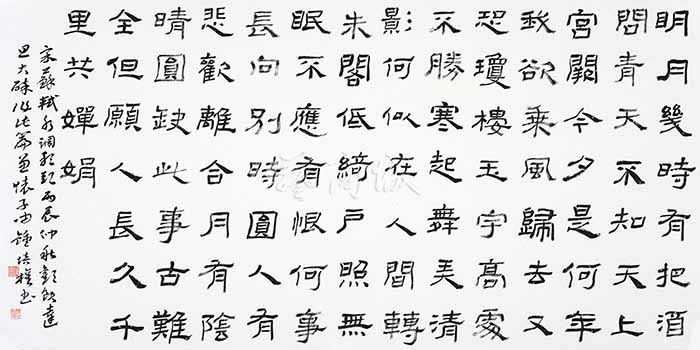 明月幾時有把酒
問青天不知天上
宮闕今夕是何年
我欲乘風歸去又
恐瓊樓玉宇高處
不勝寒起舞弄清
影何似在人間轉
朱閣低綺戶照無
眠不應有恨何事
長向別時圓人有
悲歡離合月有陰
晴圓缺此事古難
全但願人長久千
里共嬋娟
宋蘇軾水調歌頭丙辰仲秋歡飲達
旦大醉作此篇兼懷子由